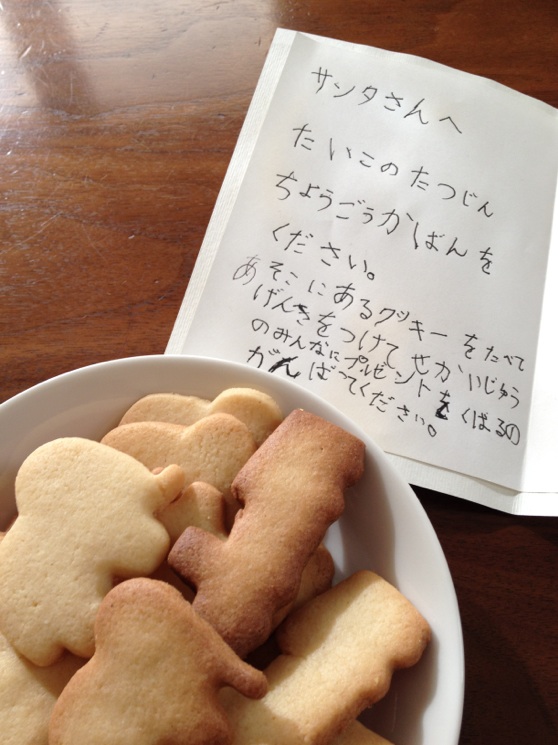 サンタさんへ
たいこのたつじん
ちょうごうかばんを
ください。
あそこにあるクッキーをたべて
げんきをつけてせかいじゅう
のみんなにプレゼントをくばるの
がんばってください。